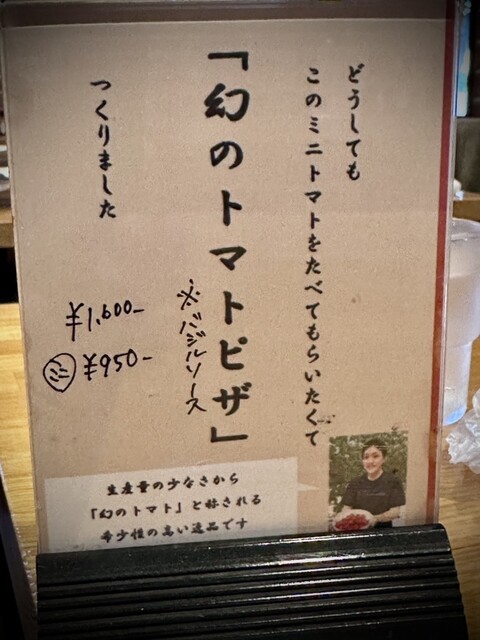 どうしても
このミニトマトをたべてもらいたくて
「幻のトマトピザ」
※バジルソース
つくりました
¥1,600-
ミニ ¥950-
生産量の少なさから
「幻のトマト」と称される
希少性の高い逸品です